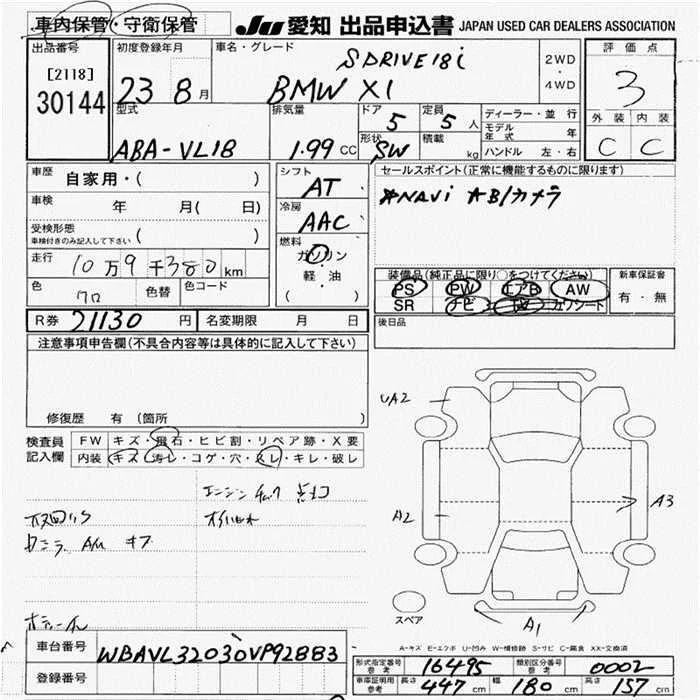 車内保管・守衛保管 JU 愛知 出品申込書 JAPAN USED CAR DEALERS ASSOCIATION
出品番号 初度登録年月 車名・グレード 評価点
[2118] SDRIVE18i 2WD
30144 23 8月 BMW X1 ・ 3
4WD
型式 排気量 ドア 定員 ディーラー・並行 外装 内装
5 5人 モデル年式 年
ABA-VL18 1.99 CC 形状 積載 ハンドル 左・右 C C
SW kg
車歴 自家用・( ) シフト セールスポイント(正常に機能するものに限ります)
AT
車検 年 月( 日) 冷房 *NAVi *B/カメラ
AAC
受検形態
車検付きのみ記入して下さい ( ) 燃料
走行 10万9千380km ガソリン 装備品(純正品に限り○をつけてください) 新車保証書
軽・油 PS PW エアB AW 有・無
色 クロ 色替 色コード (・) SR ナビ TV カワシート
R券 21130円 名変期限 月 日 後日品
注意事項申告欄(不具合内容等は具体的に記入して下さい)
修復歴 有 (箇所 )
検査員 FW キズ・飛石・ヒビ割・リペア跡・X要
記入欄 内装 キズ・汚レ・コゲ・穴・スレ・キレ・破レ
エンジンチェック点灯
UA2
A2
A3
A1
スペア
A-キズ E-エクボ U-凹み W-補修跡 S-サビ C-腐食 XX-交換済
車台番号 WBAVL32030VP92883
登録番号
形式指定番号 参考 16495 類別区分番号 参考 0002
車庫証明用 参考 長さ 447cm 幅 180cm 高さ 157cm